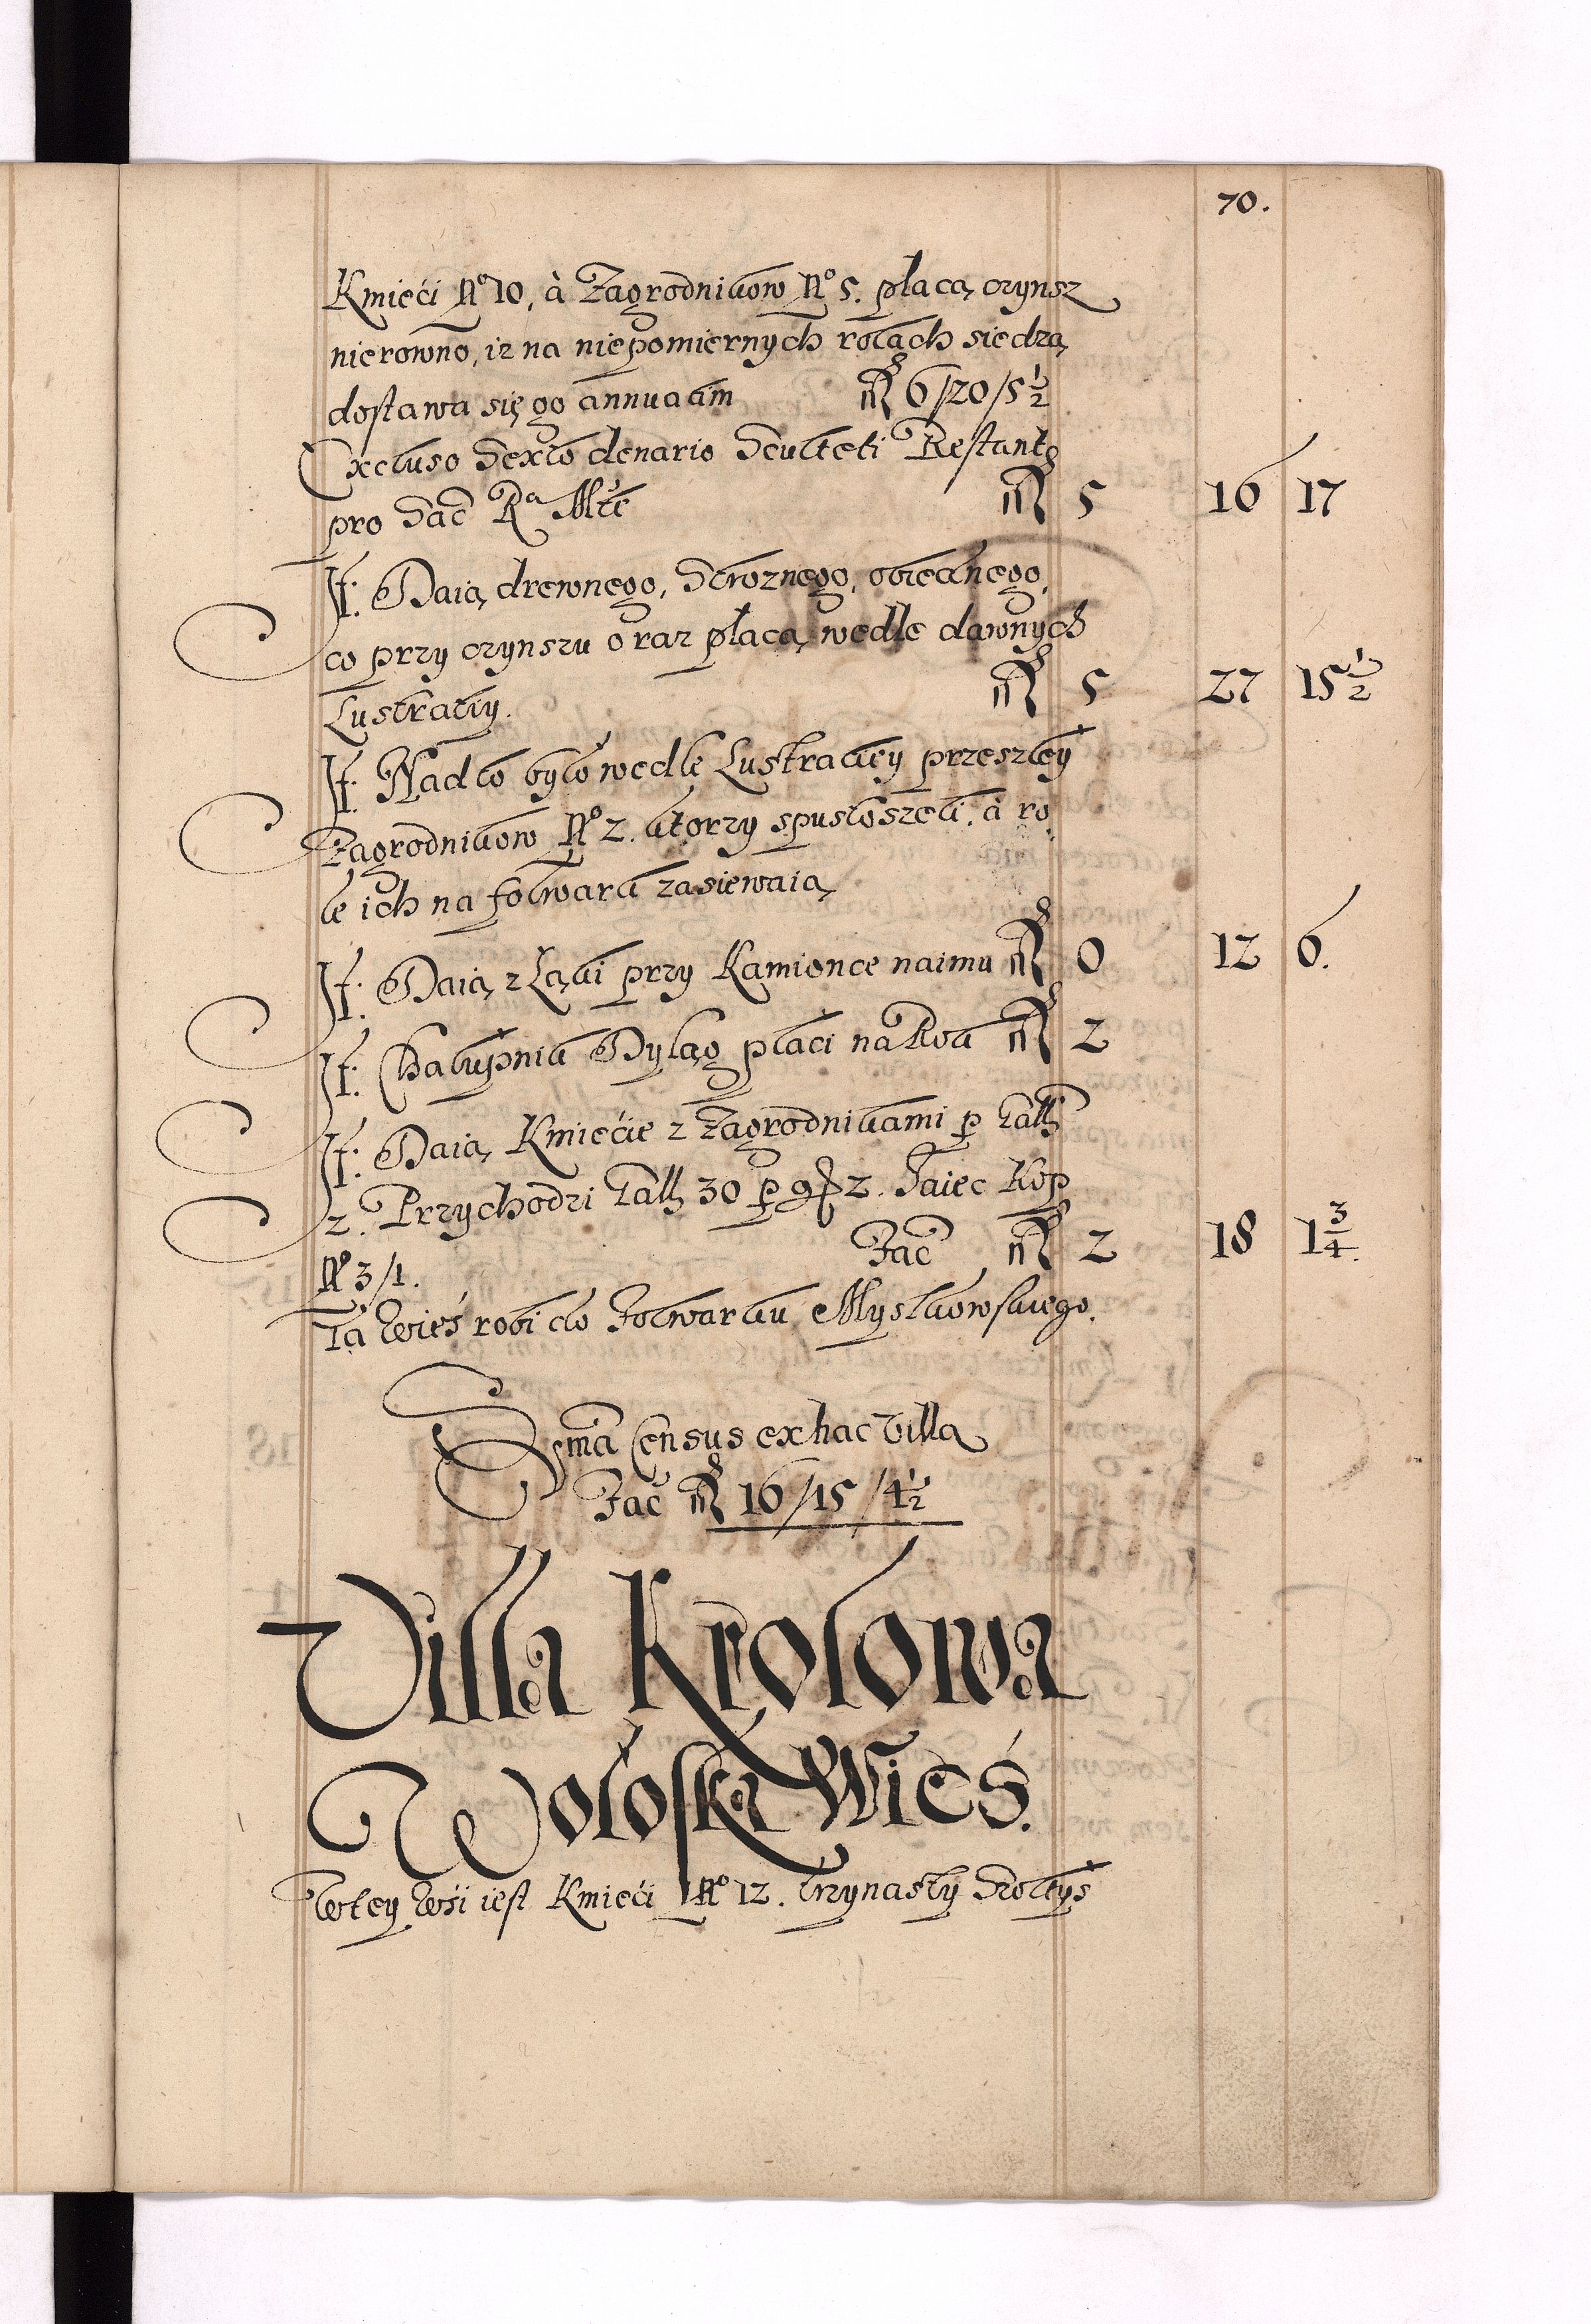 70.
Kmieći No 10, à Zagrodnikow No 5. płacą czynsz
nierowno, iz na niepomiernych rolach siedzą
dostawa się go annuatim mrc 6/20/5½
Excluso Sexto denario Sculteti Restant
pro Sac Ra Mte mrc 5 16 17
It. Daią drewnego, Stroznego, obiednego,
co przy czynszu oraz płacą wedle dawnych
Lustratiy. mrc 5 27 15½
It. Nadto było wedle Lustraciey przeszłey
Zagrodnikow No 2. ktorzy spustoszeli, à ro
le ich na folwark zasiewaią,
It. Daią z Łąki przy Kamionce naimu mrc 0 12 6.
It. Chałupnik Dyląg płaci na Rok mrc 2
It. Daią Kmiećie z Zagrodnikami p Gall
2. Przychodzi Gall 30 p gr 2. Jaiec Kop
No 3/1. Fac mrc 2 18 1¾.
Ta Wieś robi do Folwarku Mysłkowskiego.
Sma Census ex hac Villa
Fac mrc 16/15/4½
Villa Krolowa
Wołoska Wieś.
W tey Wśi iest Kmieći No 12. trzynasty Szołtys